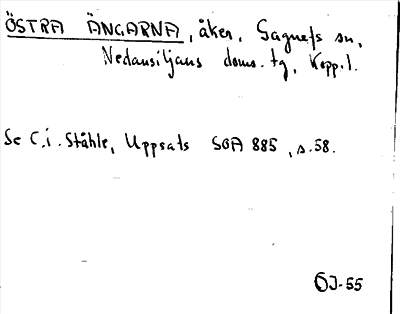 ÖSTRA ÄNGARNA, åker, Gagnefs sn,
Nedansiljans doms. tg, Kopp. l.
Se C.i. Ståhle, Uppsats SOA 885, s. 58.
ÖJ-55